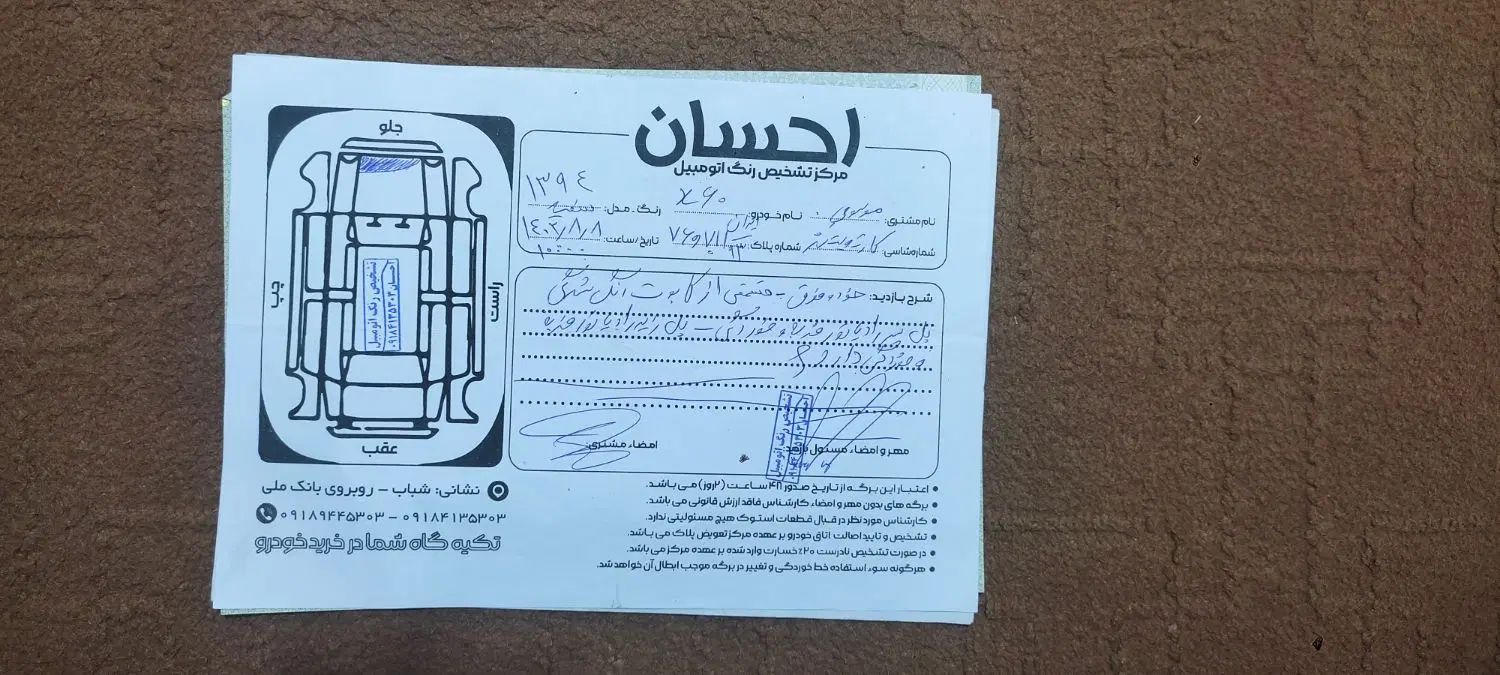 احسان
مرکز تشخیص رنگ اتومبیل
نام مشتری: موسوی نام خودرو: x۶۰ رنگ ـ مدل: سفید ۱۳۹۴
شماره شاسی: شماره پلاک: ایران تاریخ/ساعت: ۱۴۰۳/۸/۸
۱۰:۰۰
شرح بازدید: خودرو فوق - قسمتی از کاپوت رنگ شدگی
پل رادیاتور و خوردگی - پل زیر رادیاتور
و خوردگی دارد
مهر و امضاء مسئول بازدید:
امضاء مشتری:
تشخیص رنگ اتومبیل
احسان
اعتبار این برگه از تاریخ صدور ۴۸ ساعت (۲روز) می باشد.
برگه های بدون مهر و امضاء کارشناس فاقد ارزش قانونی می باشد.
کارشناس مورد نظر در قبال قطعات استوک هیچ مسئولیتی ندارد.
تشخیص و تایید اصالت اتاق خودرو بر عهده مرکز تعویض پلاک می باشد.
در صورت تشخیص نادرست ۲۰٪ خسارت وارد شده بر عهده مرکز می باشد.
هرگونه سوء استفاده خط خوردگی و تغییر در برگه موجب ابطال آن خواهد شد.
جلو
چپ
راست
تشخیص رنگ اتومبیل
احسان ۳۵۳۰۳
۰۹۱۸۴۱۳۵۳۰۳
عقب
نشانی: شباب – روبروی بانک ملی
۰۹۱۸۹۴۴۵۳۰۳ – ۰۹۱۸۴۱۳۵۳۰۳
تکیه گاه شما در خرید خودرو